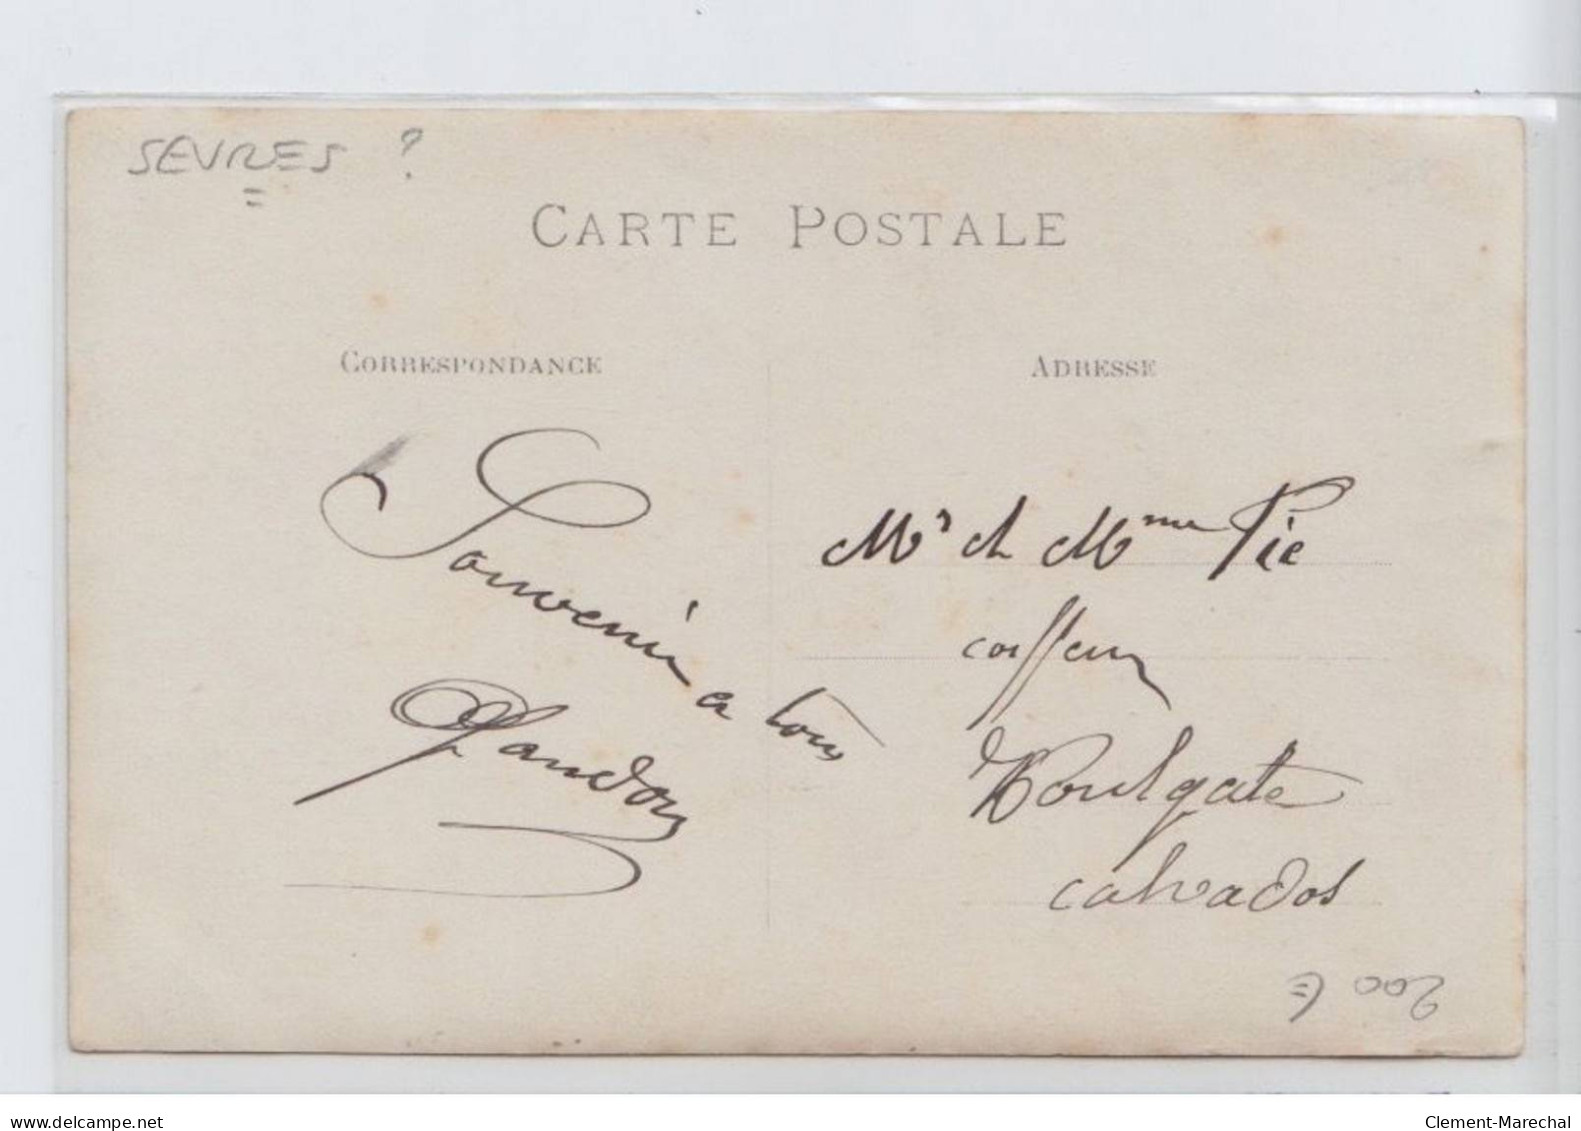 SEVRES ?
CARTE POSTALE
CORRESPONDANCE
Souvenir a tous
Landon
ADRESSE
Mr et Mme Pie
coiffeur
Houlgate
calvados
200 €
www.delcampe.net
Clement-Marechal